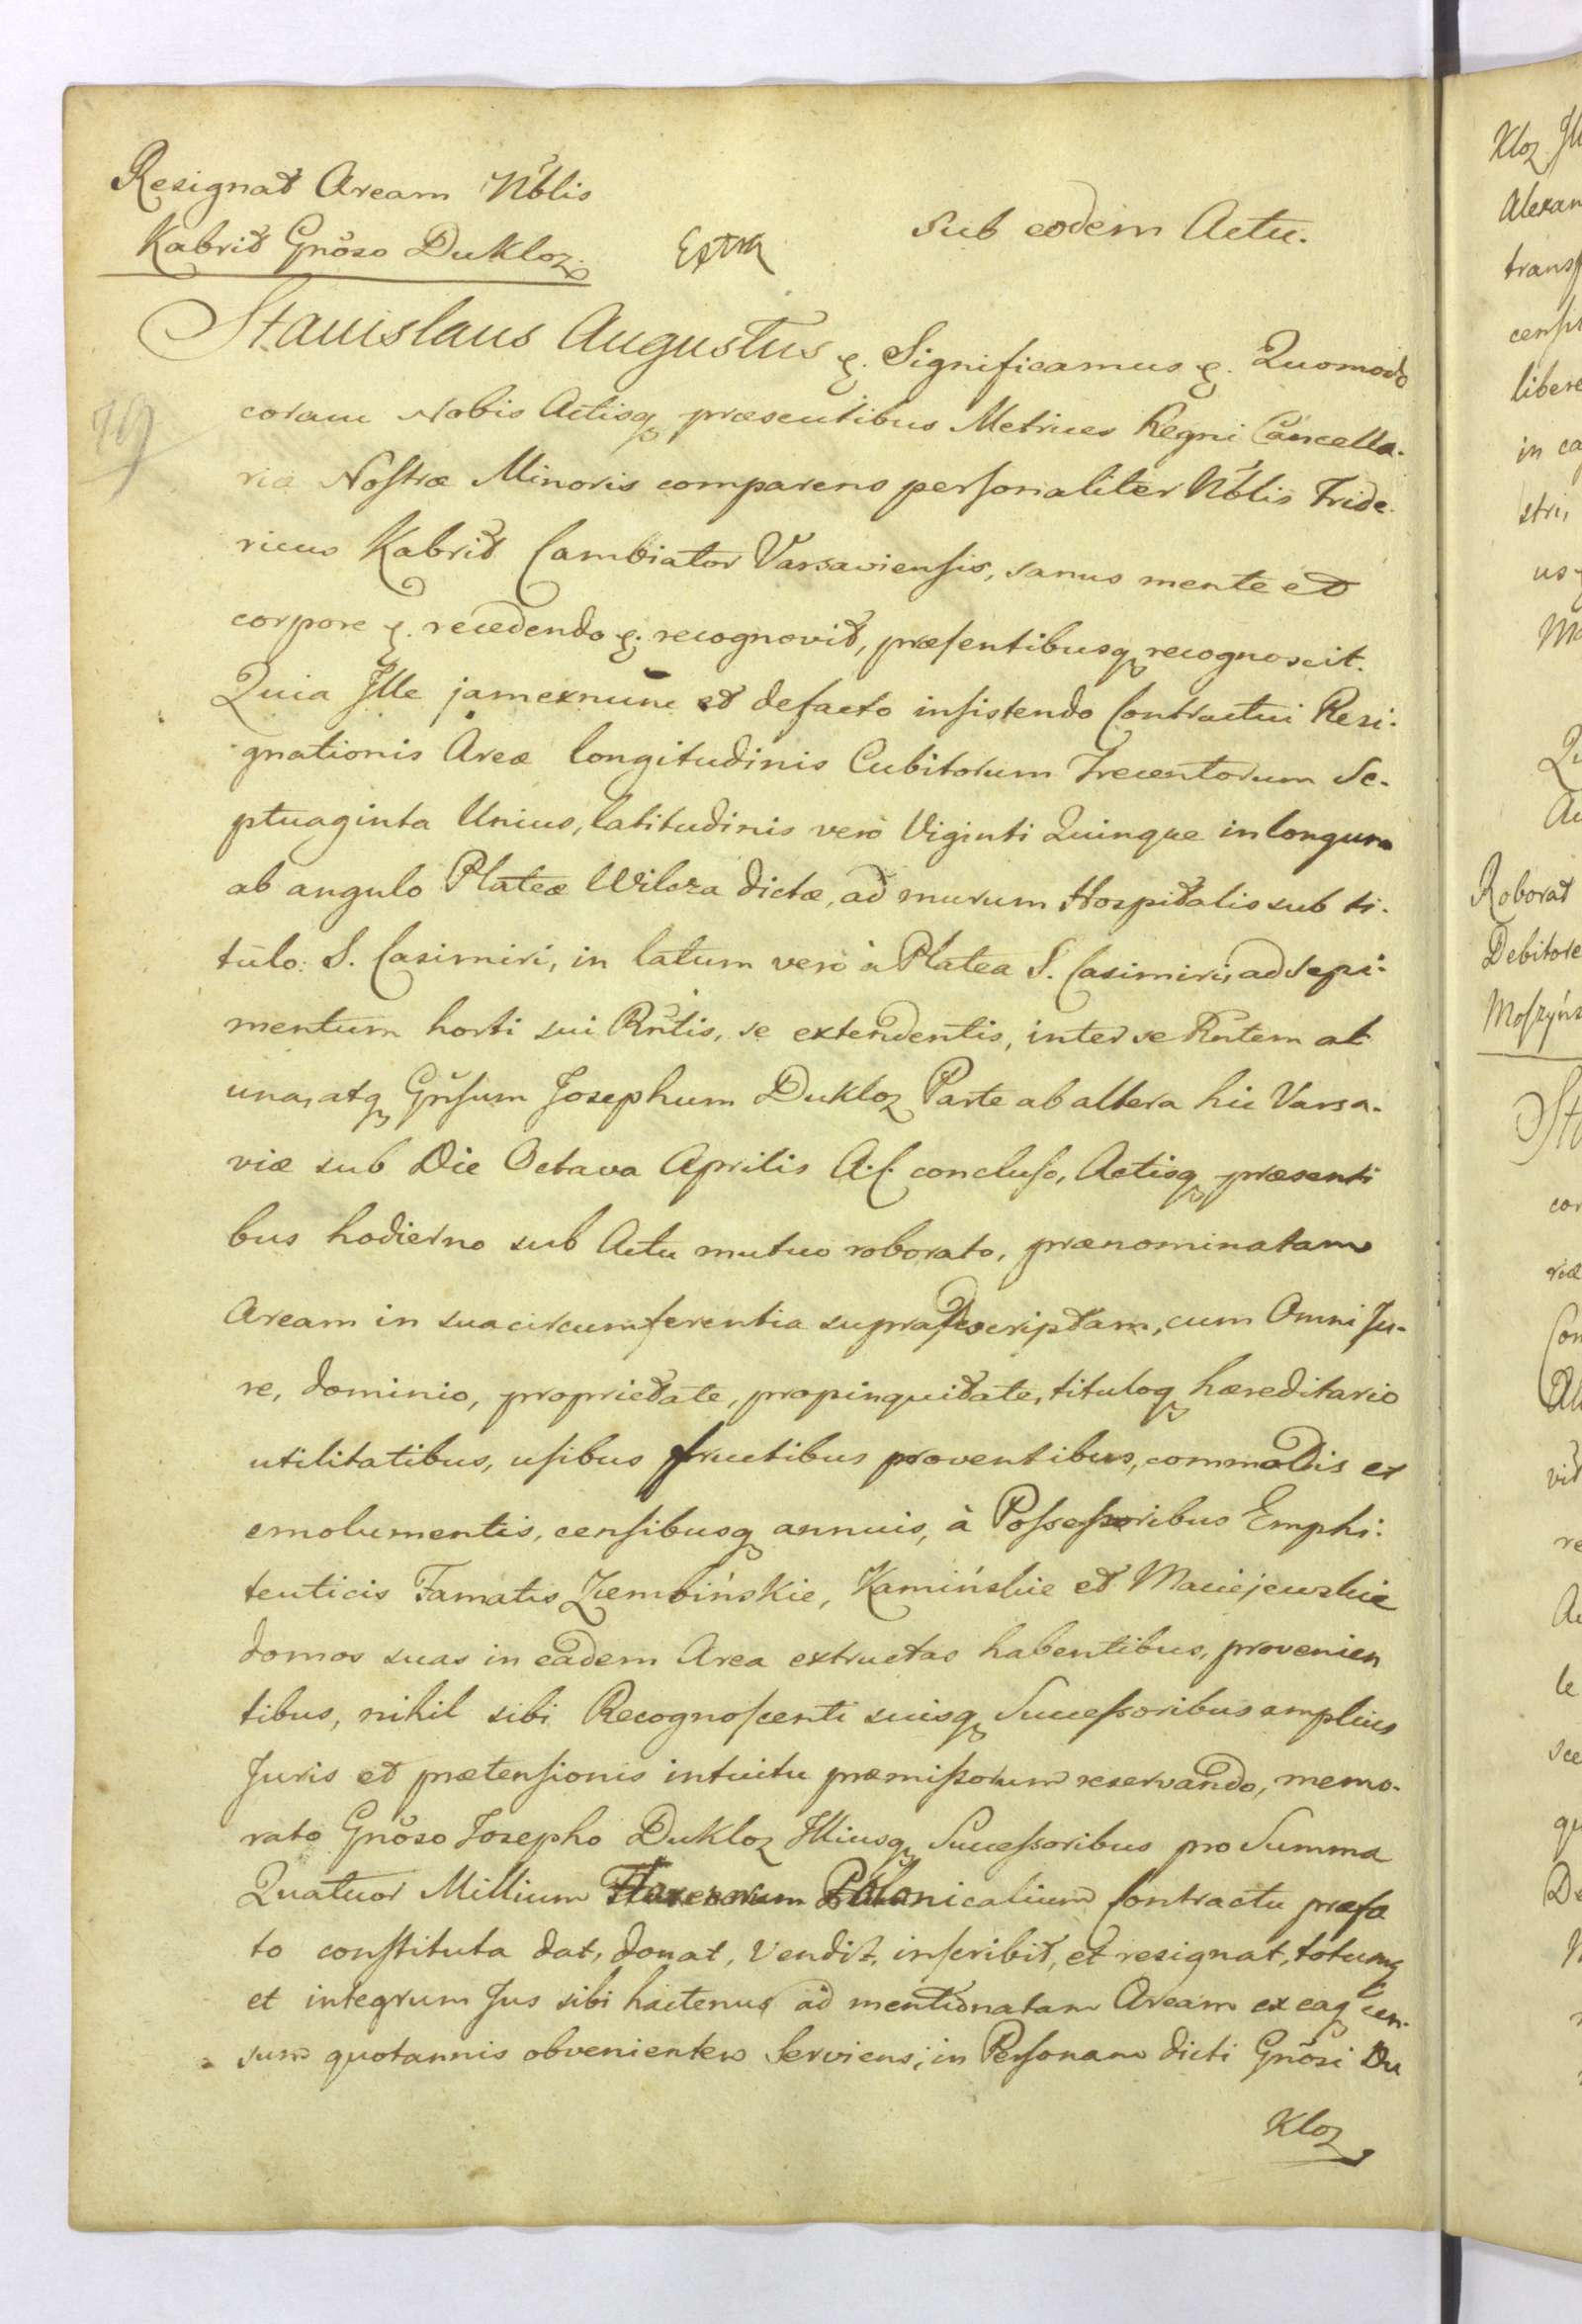 Resignat Aream Nblis
Kabrit Gnoso Dukloz.
Extra
Sub eodem Actu.
79
Stanislaus Augustus &. Significamus &. Quomodo
coram Nobis Actisq præsentibus Metrices Regni Cancella-
riæ Nostræ Minoris comparens personaliter Nblis Fride-
ricus Kabrit Cambiator Varsaviensis, sanus mente et
corpore &. recedendo &. recognovit, præsentibusq recognoscit.
Quia Ille jamexnunc et defacto insistendo Contractui Resi-
gnationis Areæ longitudinis Cubitorum Trecentorum Se-
ptuaginta Unius, latitudinis verò Viginti Quinque in longum
ab angulo Plateæ Wilcza dictæ, ad murum Hospitalis sub ti-
tulo: S. Casimiri, in latum verò à Platea S. Casimiri, ad sepi-
mentum horti sui Rntis, se extendentis, inter se Rntem ab
una, atq Gnsum Josephum Dukloz Parte ab altera hic Varsa-
viæ sub Die Octava Aprilis A.C. concluso, Actisq præsenti
bus hodierno sub Actu mutuo roborato, prænominatam
Aream in sua circumferentia supradescriptam, cum Omni Ju-
re, dominio, proprietate, propinquitate, tituloq hæreditario
utilitatibus, usibus fructibus proventibus, commodis et
emolumentis, censibusq annuis, à Possessoribus Emphi-
teuticis Famatis Ziembińskie, Kamińskie et Maciejewskie
domos suas in eadem Area extructas habentibus, provenien
tibus, nihil sibi Recognoscenti suisq Successoribus amplius
Juris et prætensionis intuitu præmissorum reservando, memo-
rato Gnoso Josepho Dukloz Illiusq Successoribus pro Summa
Quatuor Millium Florenorum Polonicalium Contractu præfa
to constituta dat, donat, Vendit, inscribit, et resignat, totumq
et integrum Jus sibi hactenus ad mentionatam Aream ex eaq cen-
sum quotannis obvenientem Serviens, in Personam dicti Gnosi Du
Kloz